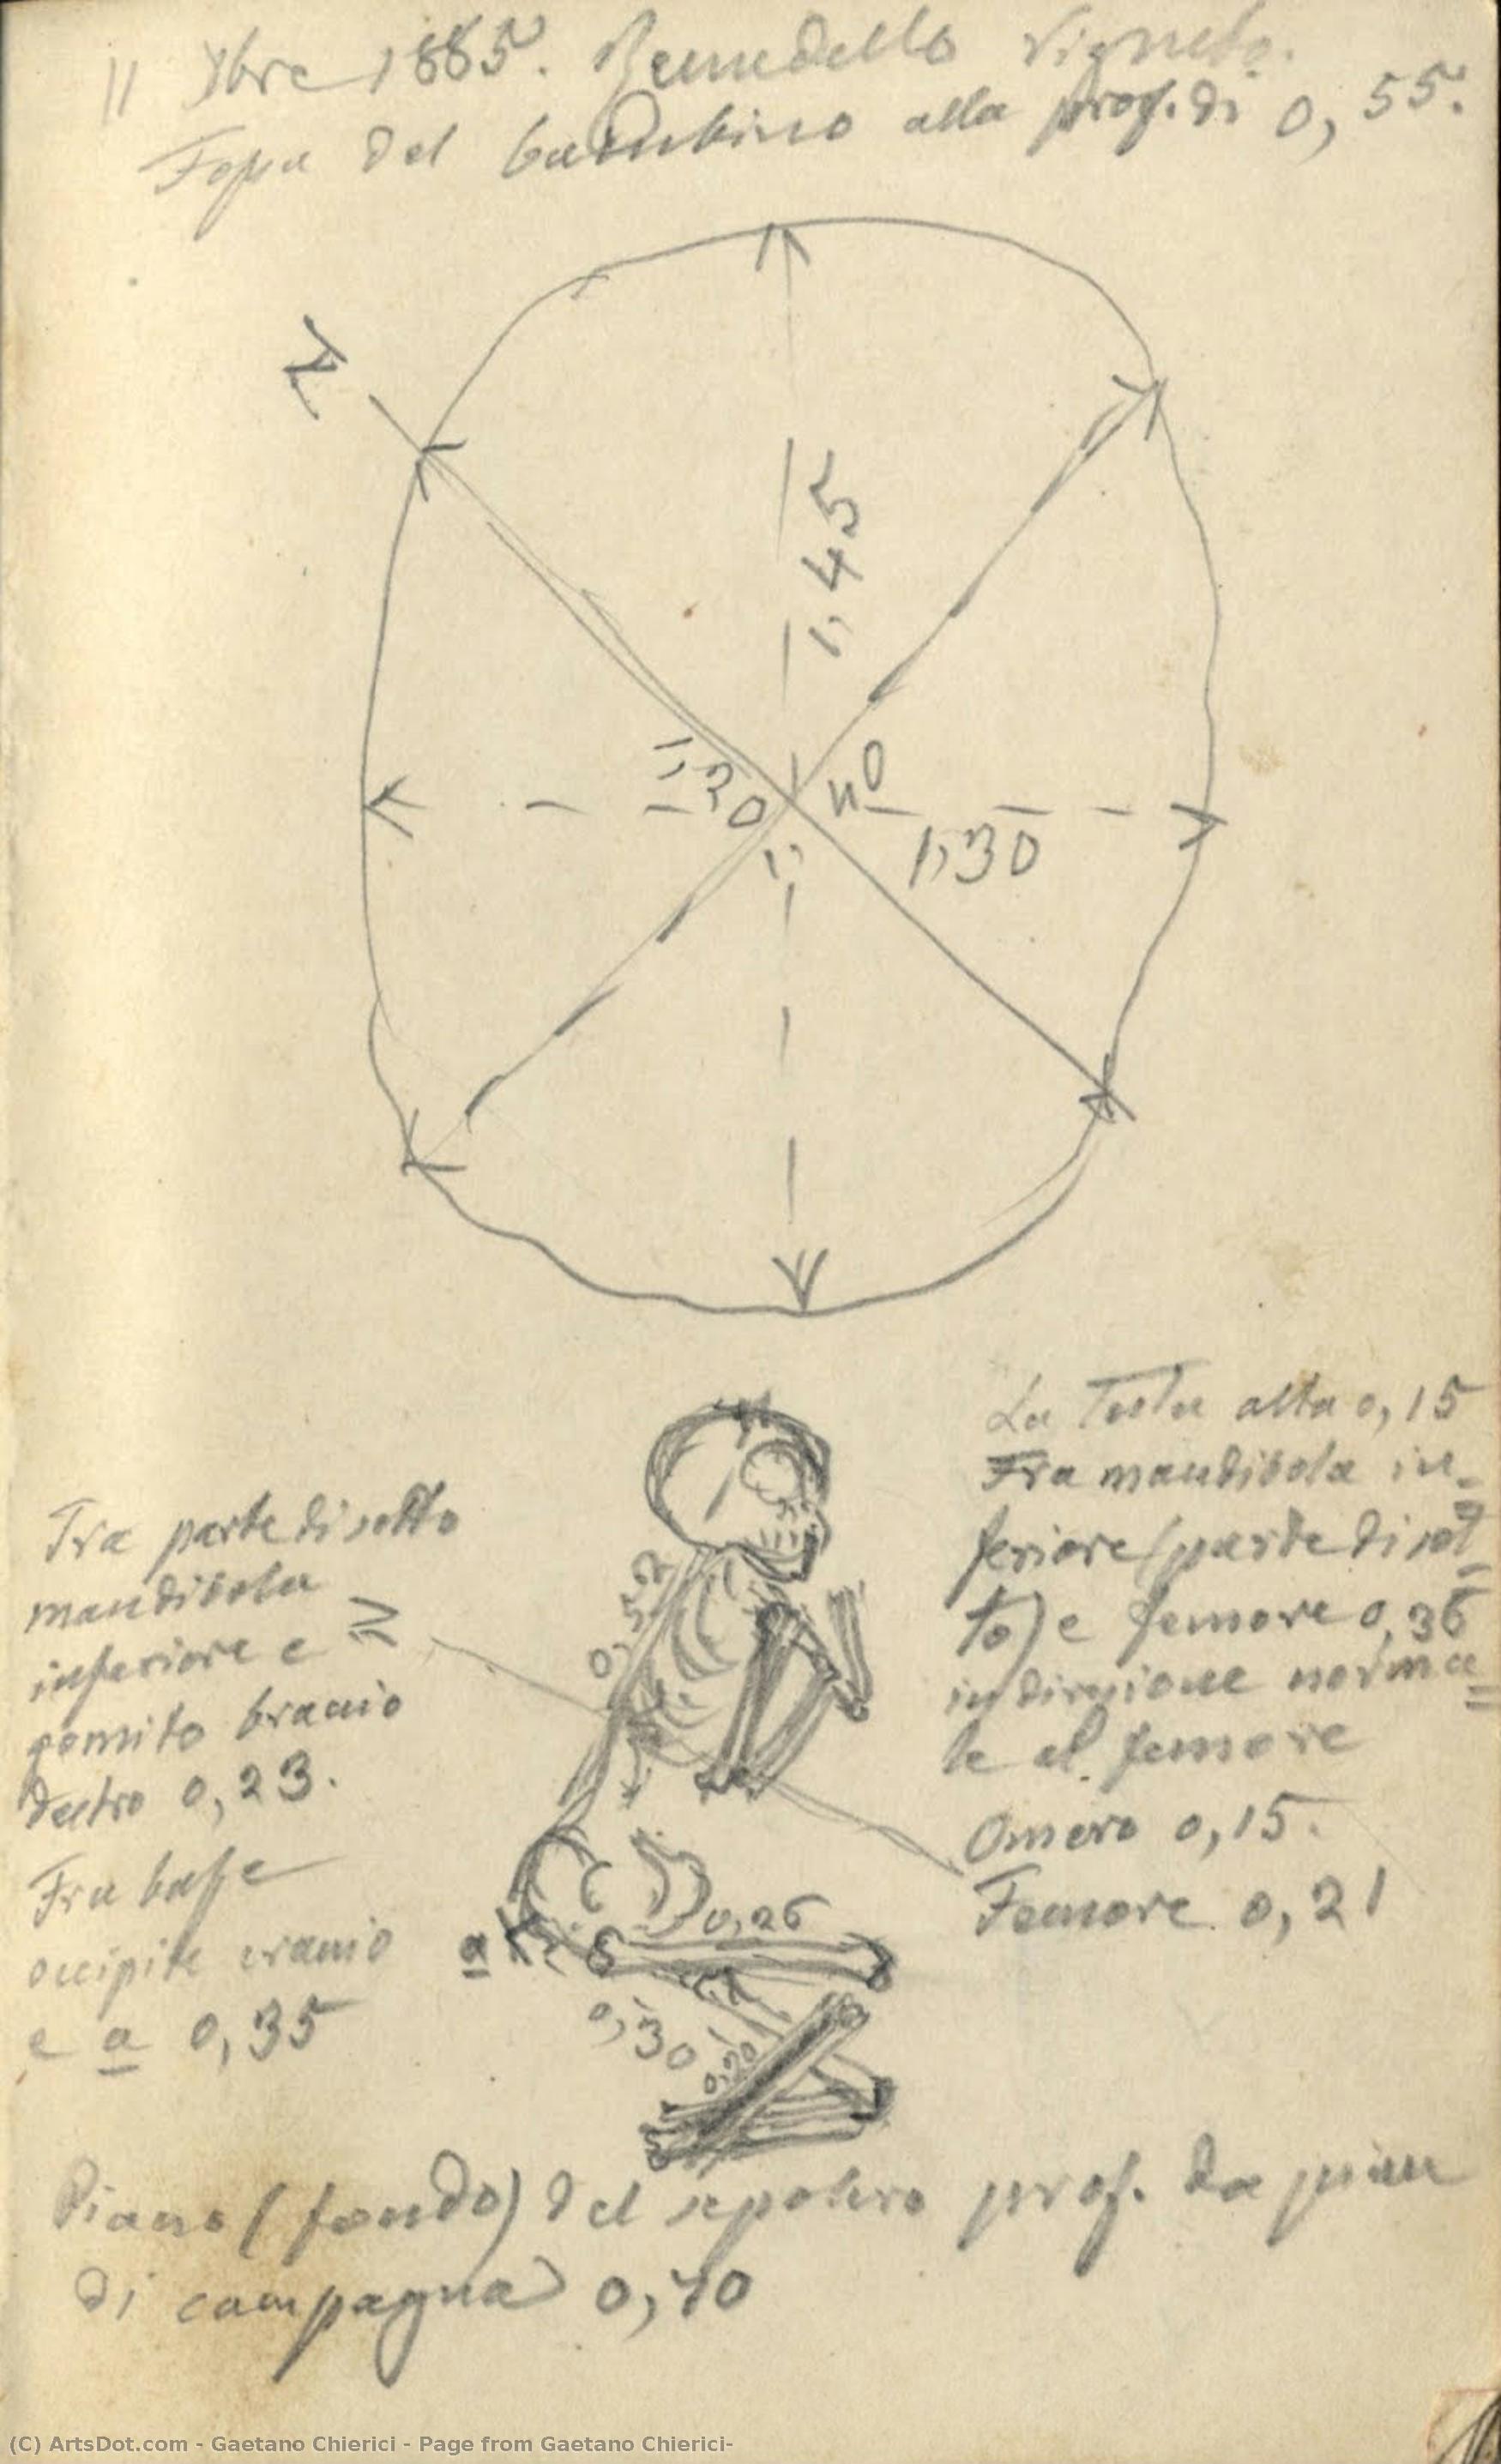 11 Xbre 1885. Remedello Vigneto.
Fossa del bambino alla prof. di 0,55.
N
1,45
1,20
1,40
1,30
La Testa alta 0,15
Fra mandibola in-
feriore (parte di sot-
to) e femore 0,36
in direzione norma=
le al femore
Omero 0,15.
Femore 0,21
Tra parte di sotto
mandibola
inferiore e
gomito braccio
destro 0,23.
Fra base
occipite cranio
e a 0,35
N
a
0,26
0,30
0,20
Piano (fondo) del sepolcro prof. da piano
di campagna 0,70
(C) ArtsDot.com - Gaetano Chierici - Page from Gaetano Chierici-